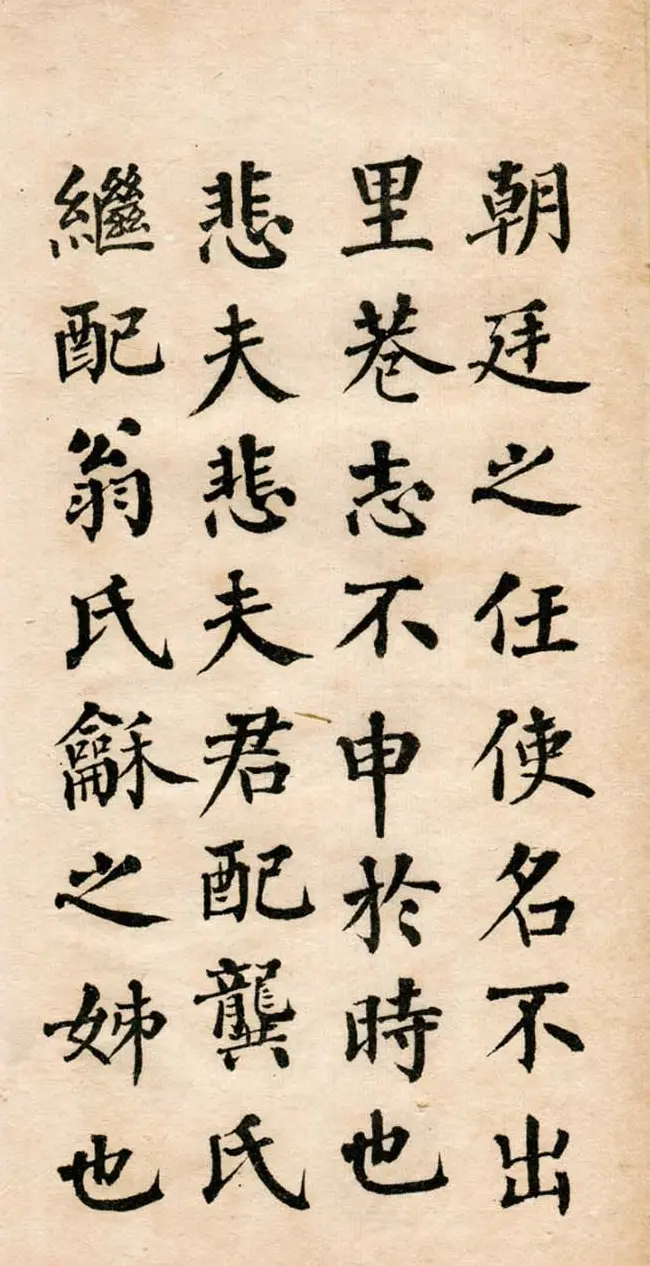 朝廷之任使名不出
里巷志不申於時也
悲夫悲夫君配龔氏
繼配翁氏龢之姊也